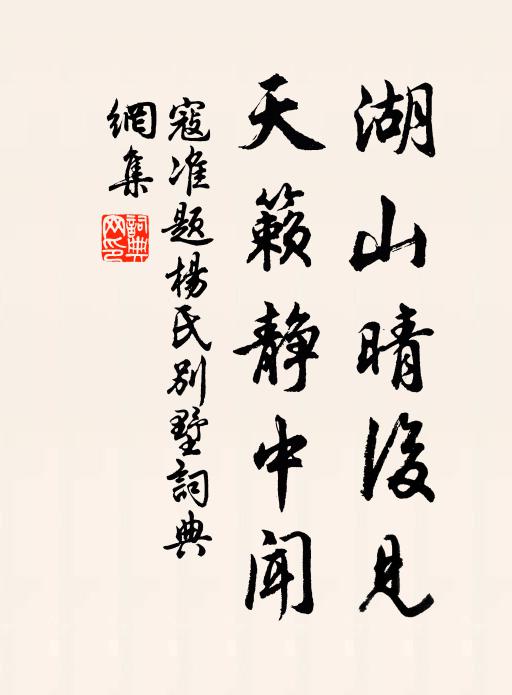 湖山晴後見
天籟静中闻
寇准題楊氏别墅詞典
網集
詞典
网印